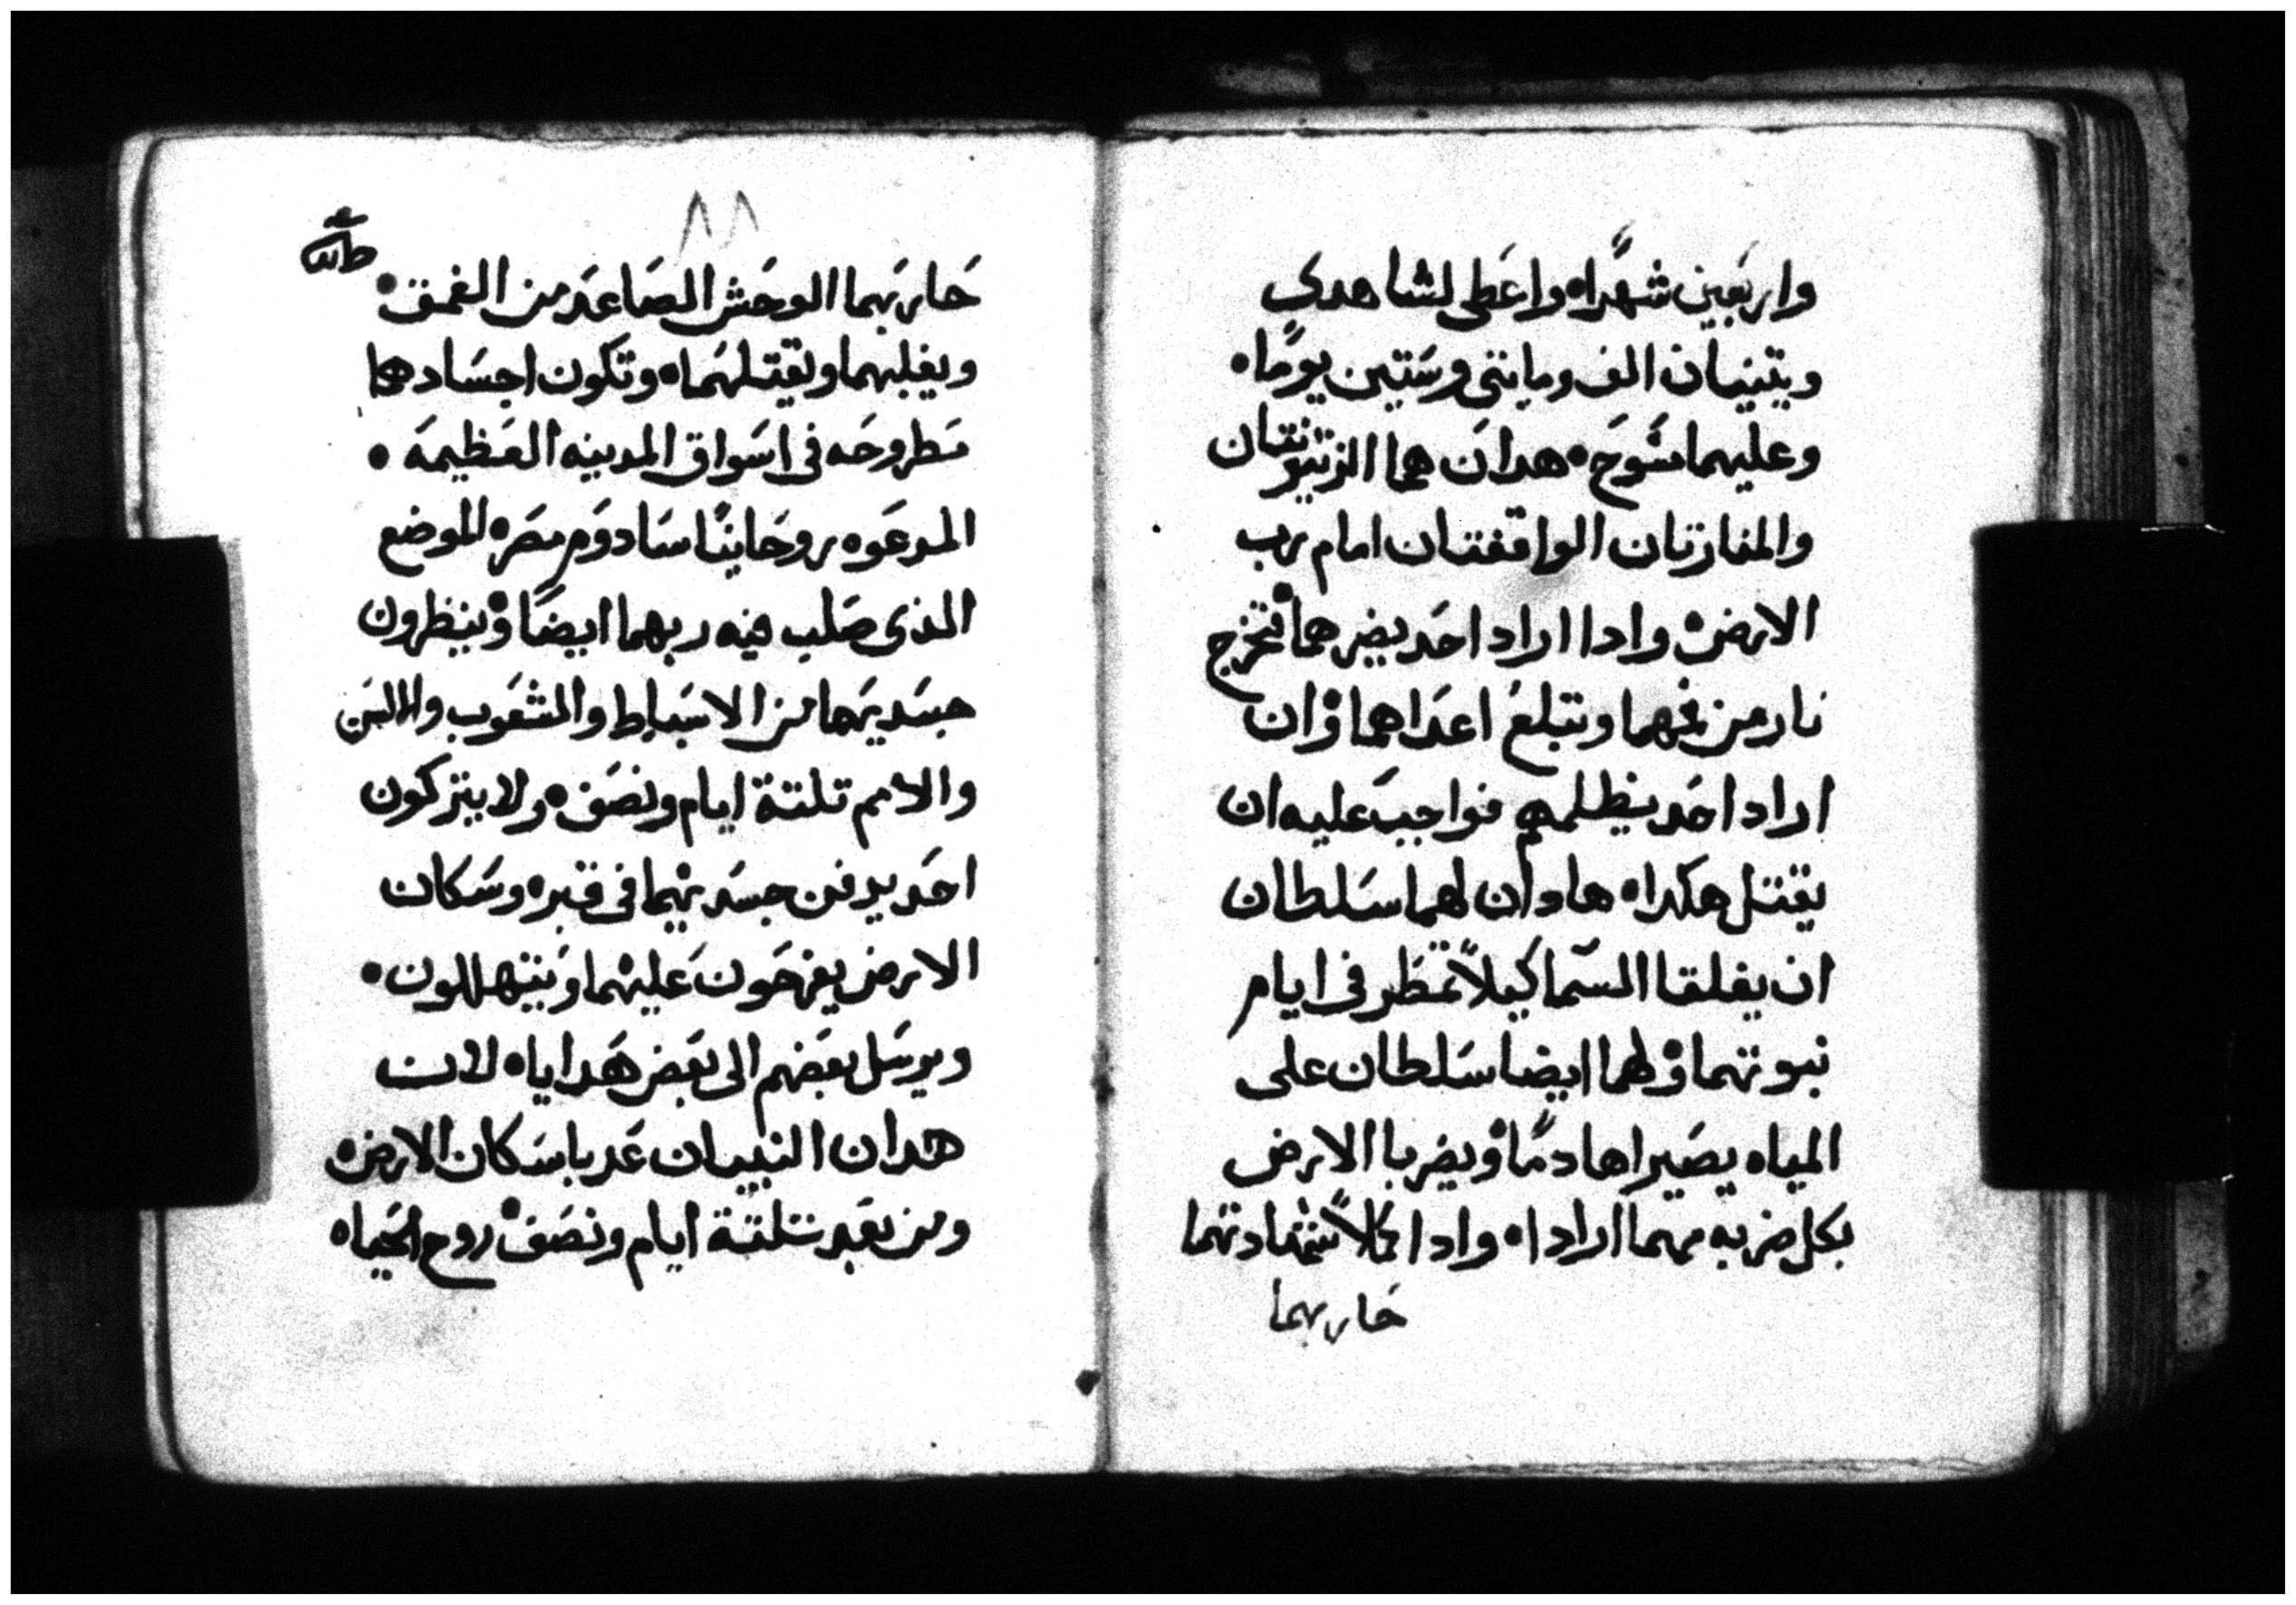 واربعين شهرًا • واعطى لشاهدى
ويتنبيان الف ومايتى وستين يومًا •
وعليهما مسُوح • هدان هما الزيتونتان
والمنارتان الواقفتان امام رب
الارض • وادا اراد احد يضرهما فتخرج
نار من فمهما وتبلغ اعداهما وان
اراد احد يظلمهم فواجب عليه ان
يقتل هكدا • هاوان لهما سلطان
ان يغلقا السما كيلاً تمطر فى ايام
نبوتهما ولهما ايضا سلطان على
المياه يصيراها دمًا ويضربا الارض
بكل ضربه مهما ارادا • وادا كملا شهادتهما
حاربهما
٨٨
حاربهما الوحش الصاعد من الغمق •
ويغلبهما ويقتلهما • وتكون اجسادهما
مطروحه فى اسواق المدينه العظيمه •
المدعوه روحانيًا سادوم مصر • الموضع
الذى صلب فيه ربهما ايضًا وينظرون
جسديهما من الاسباط والشعوب والالسن
والامم تلتة ايام ونصف • ولا يتركون
احد يدفن جسديهما فى قبر • وسكان
الارض يفرحون عليهما ويتهللون •
ويرسل بعضهم الى بعض هدايا • لان
هدان النبيان عدبا سكان الارض •
ومن بعد تلتة ايام ونصف روح الحياه